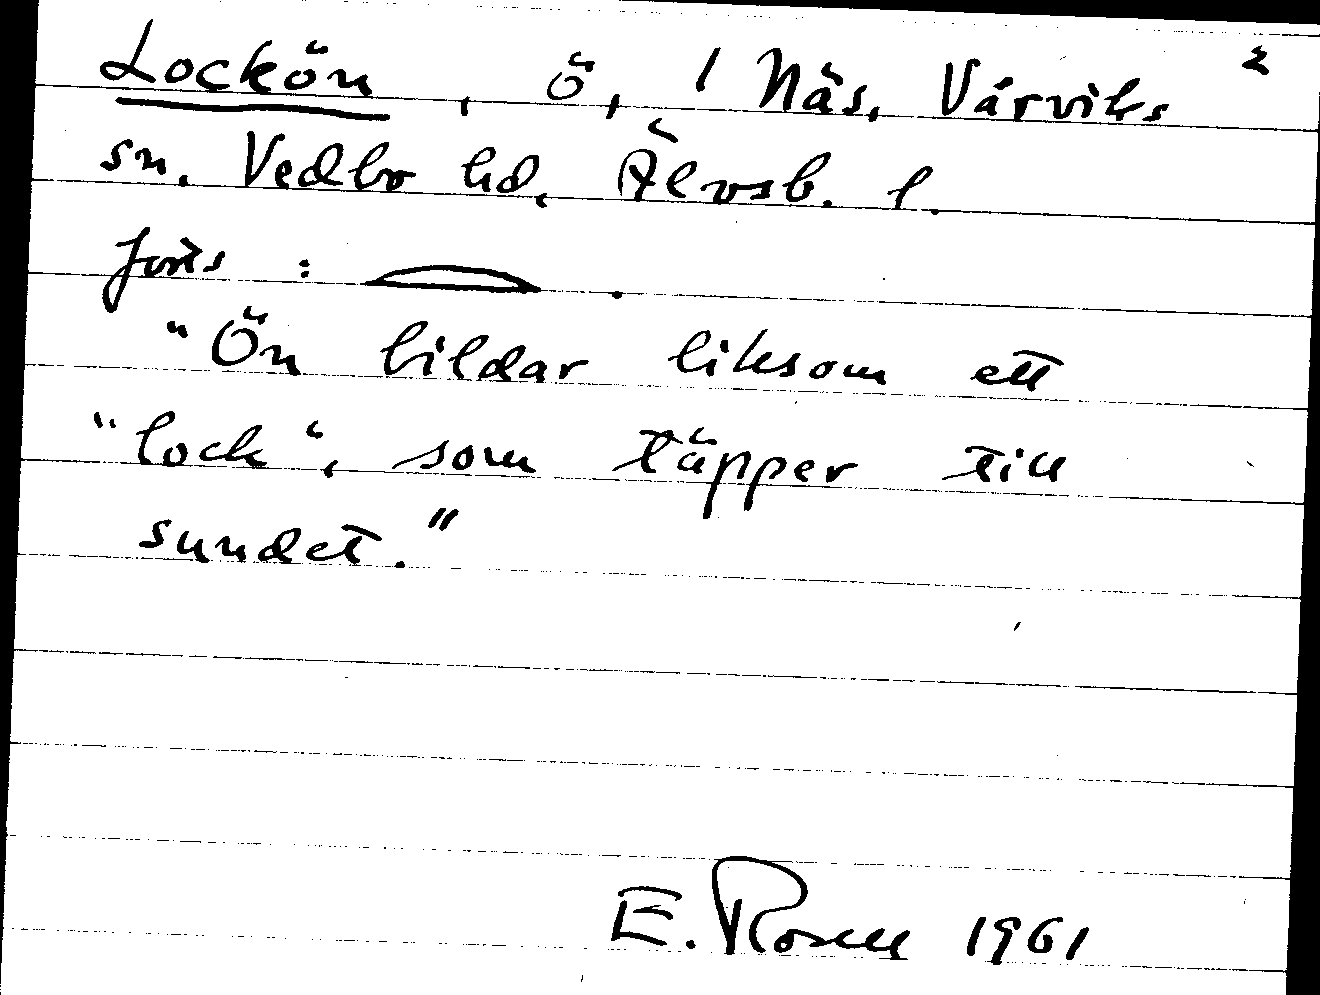 Lockön, ö, / Näs, Vårviks 2
sn. Vedbo hd, Älvsb. l.
forts :
"Ön bildar liksom ett
"lock", som täpper till
sundet."
E. Rosell 1961